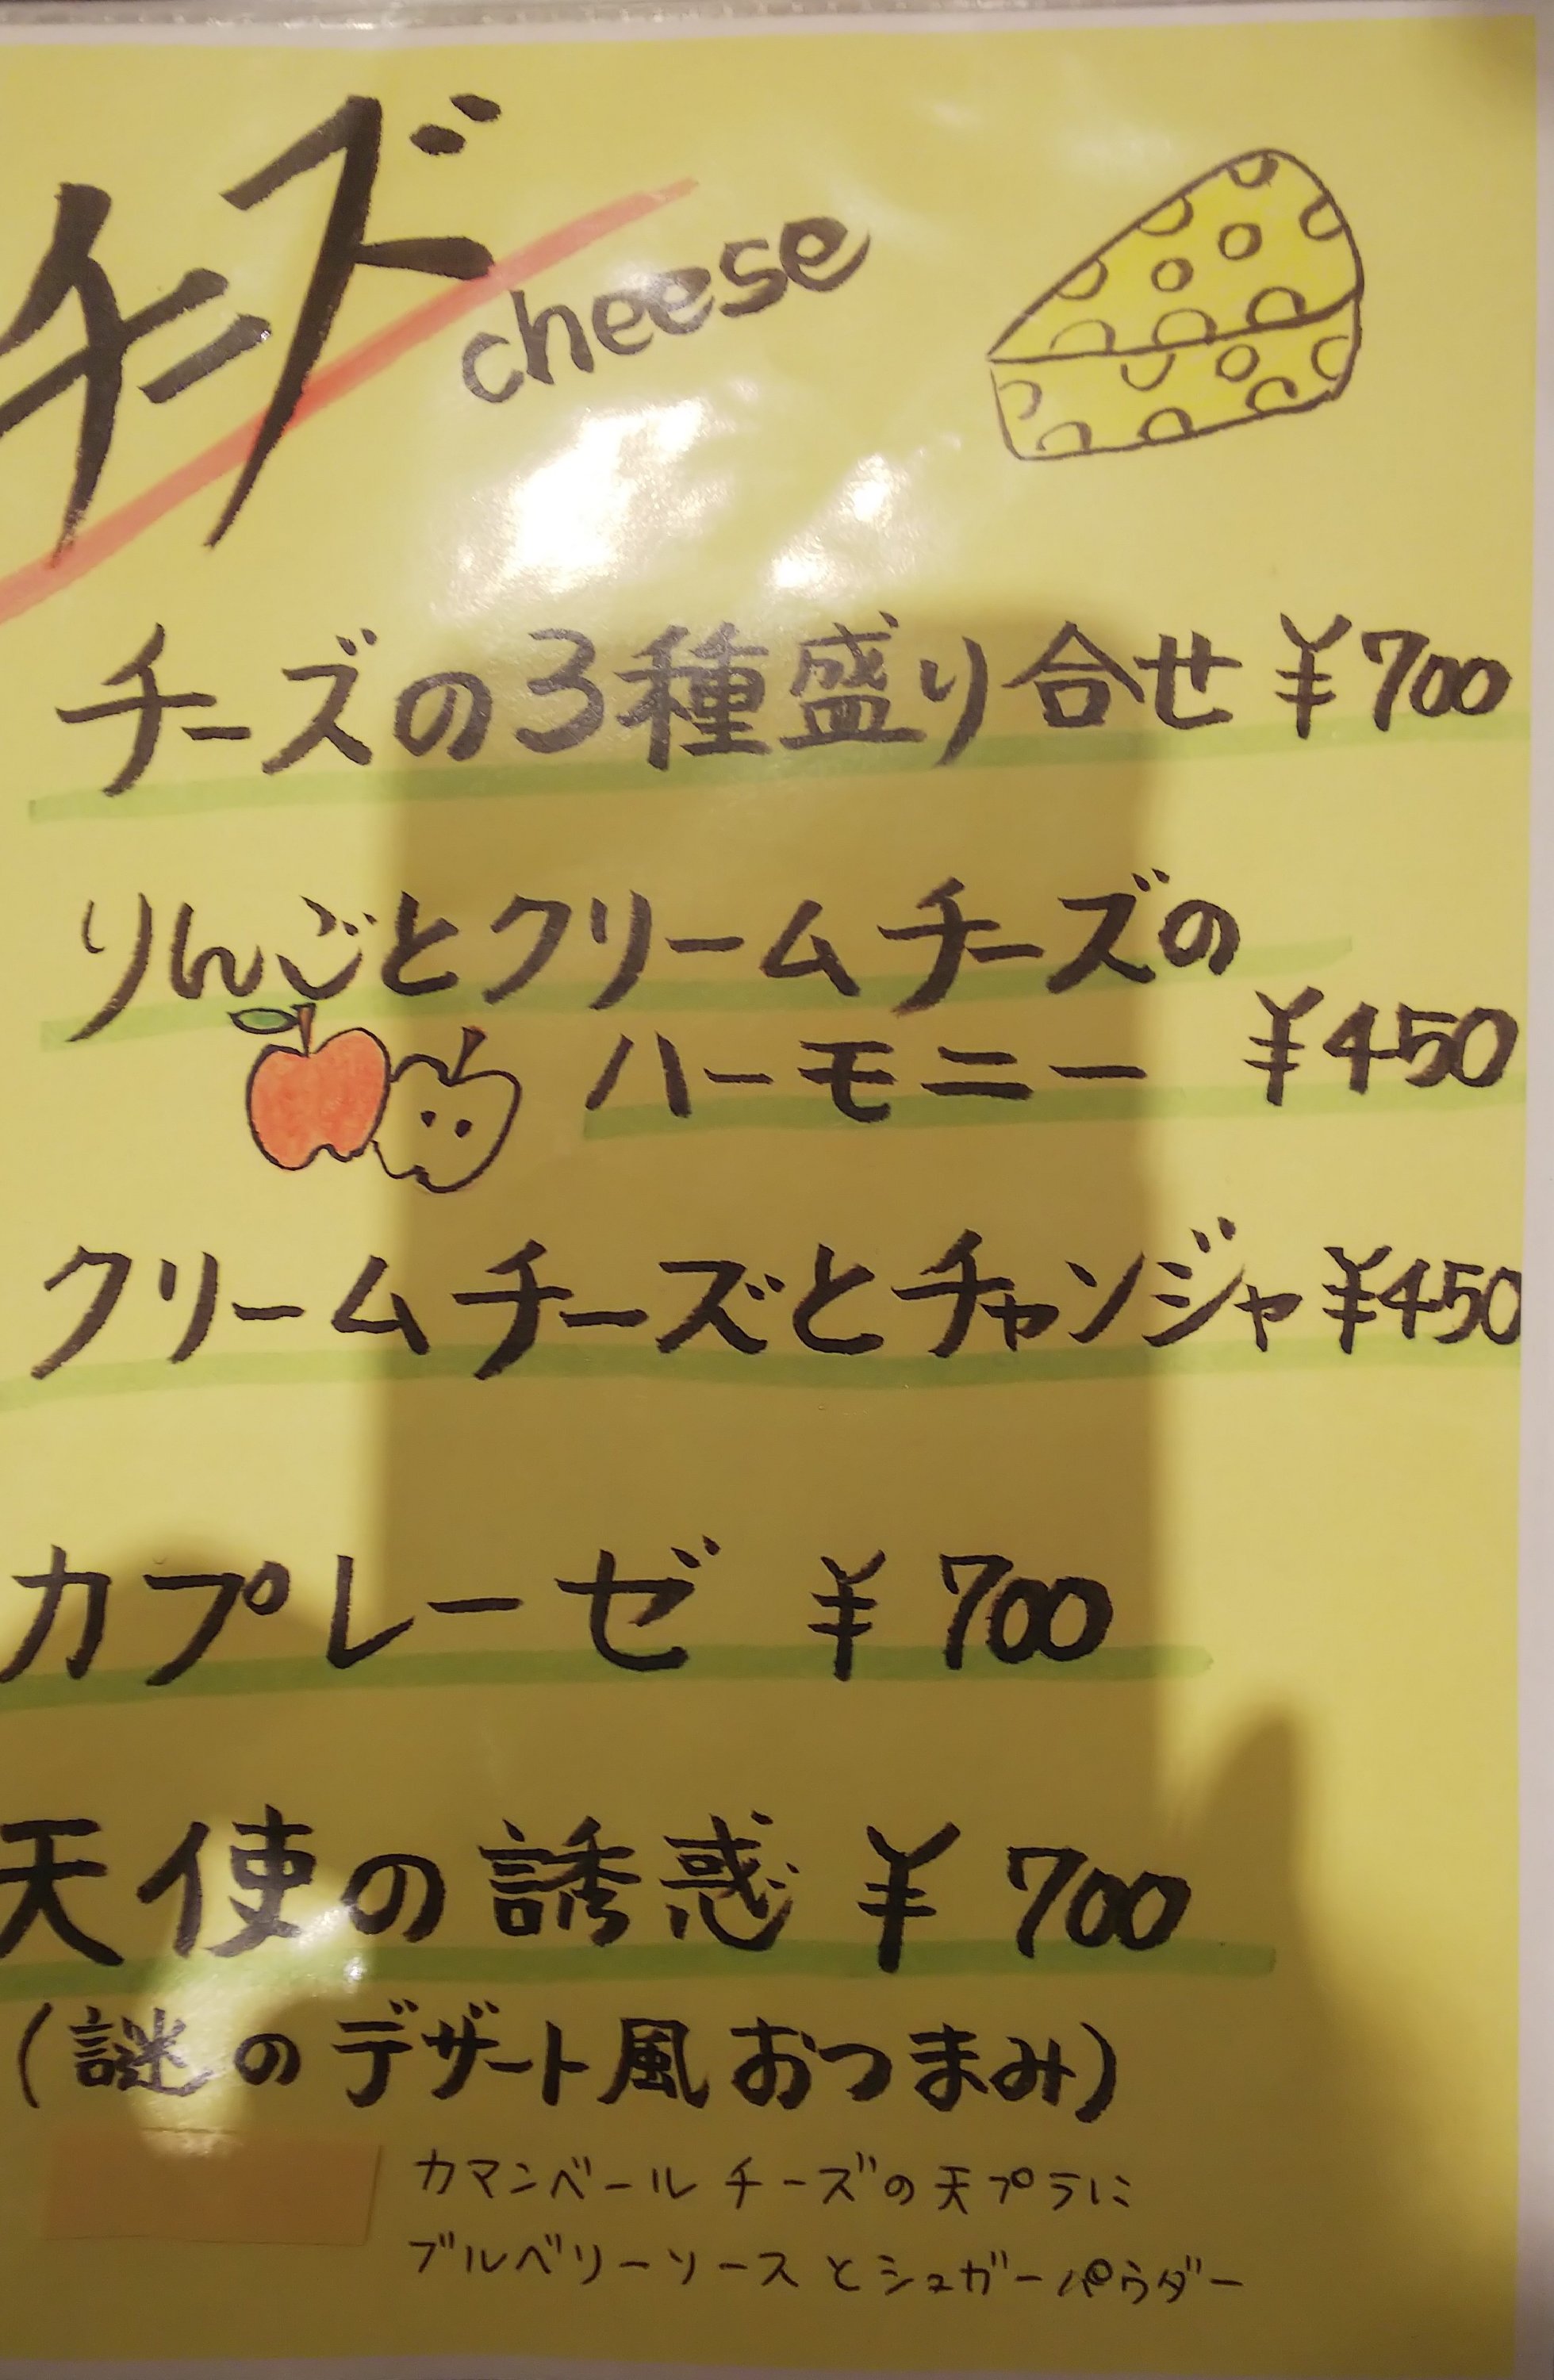 チーズ
cheese
チーズの3種盛り合せ ¥700
りんごとクリームチーズの
ハーモニー ¥450
クリームチーズとチャンジャ ¥450
カプレーゼ ¥700
天使の誘惑 ¥700
(謎のデザート風おつまみ)
カマンベールチーズの天プラに
ブルベリーソースとシュガーパウダー